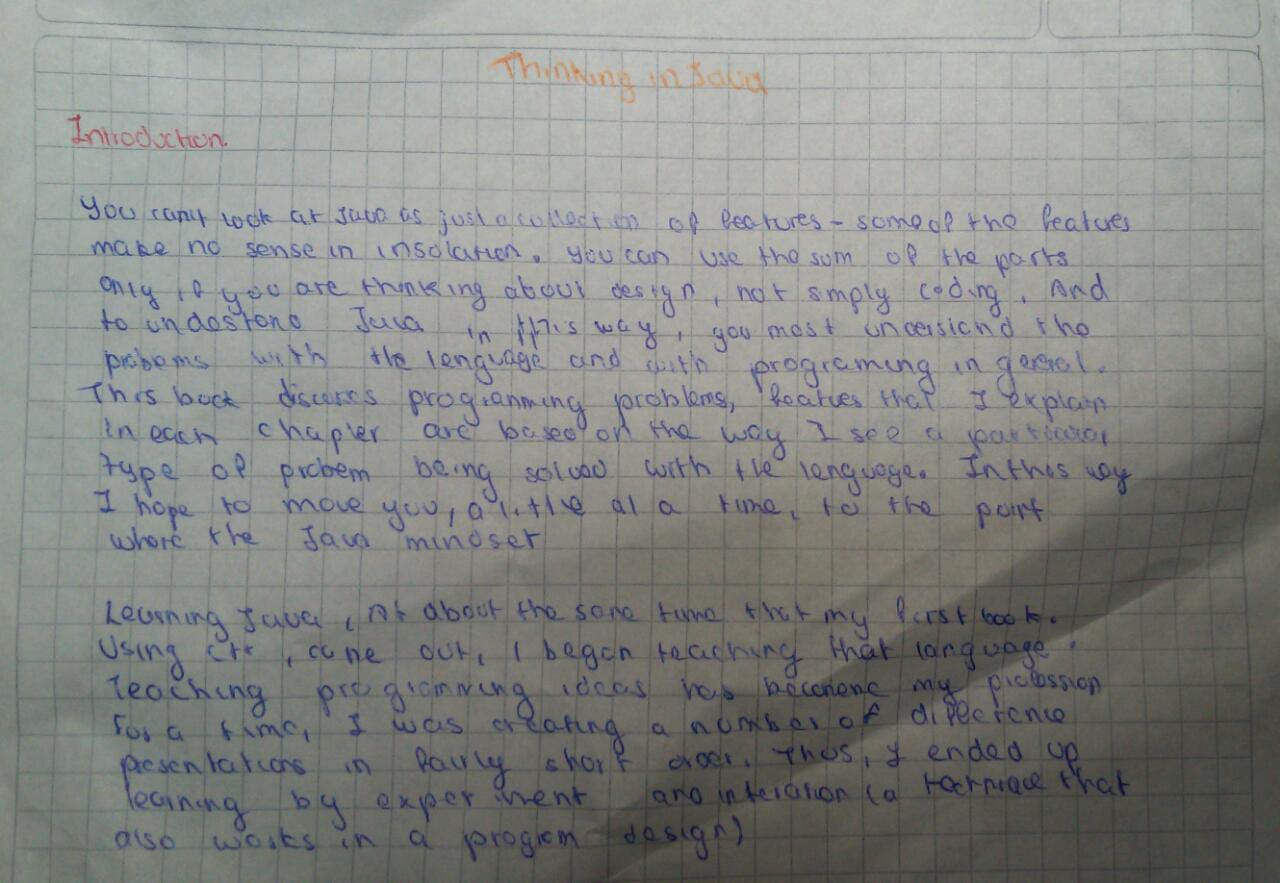 Thinking in Java
Introduction.
You can't look at Java as just a collection of features - some of the features
make no sense in insolation. You can use the sum of the parts
only if you are thinking about design, not simply coding. And
to undestand Java in this way, you most understand the
probems with the lenguage and with programing in general.
This book discuses programming problems, featues that I explain
in each chapter are based on the way I see a particular
type of probem being solved with the lenguage. In this way
I hope to move you, a little at a time, to the point
where the Java mindset
Learning Java, At about the same time that my first book.
Using C++, came out, I began teaching that language.
Teaching programming ideas has become my profession
For a time, I was creating a number of difference
presentations in fairly short order. Thus, I ended up
learning by experiment and interation (a technique that
also works in a program design)